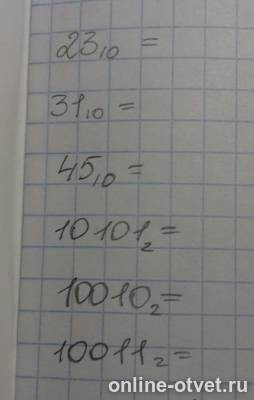 23₁₀ =
31₁₀ =
45₁₀ =
10101₂ =
10010₂ =
10011₂ =
online-otvet.ru